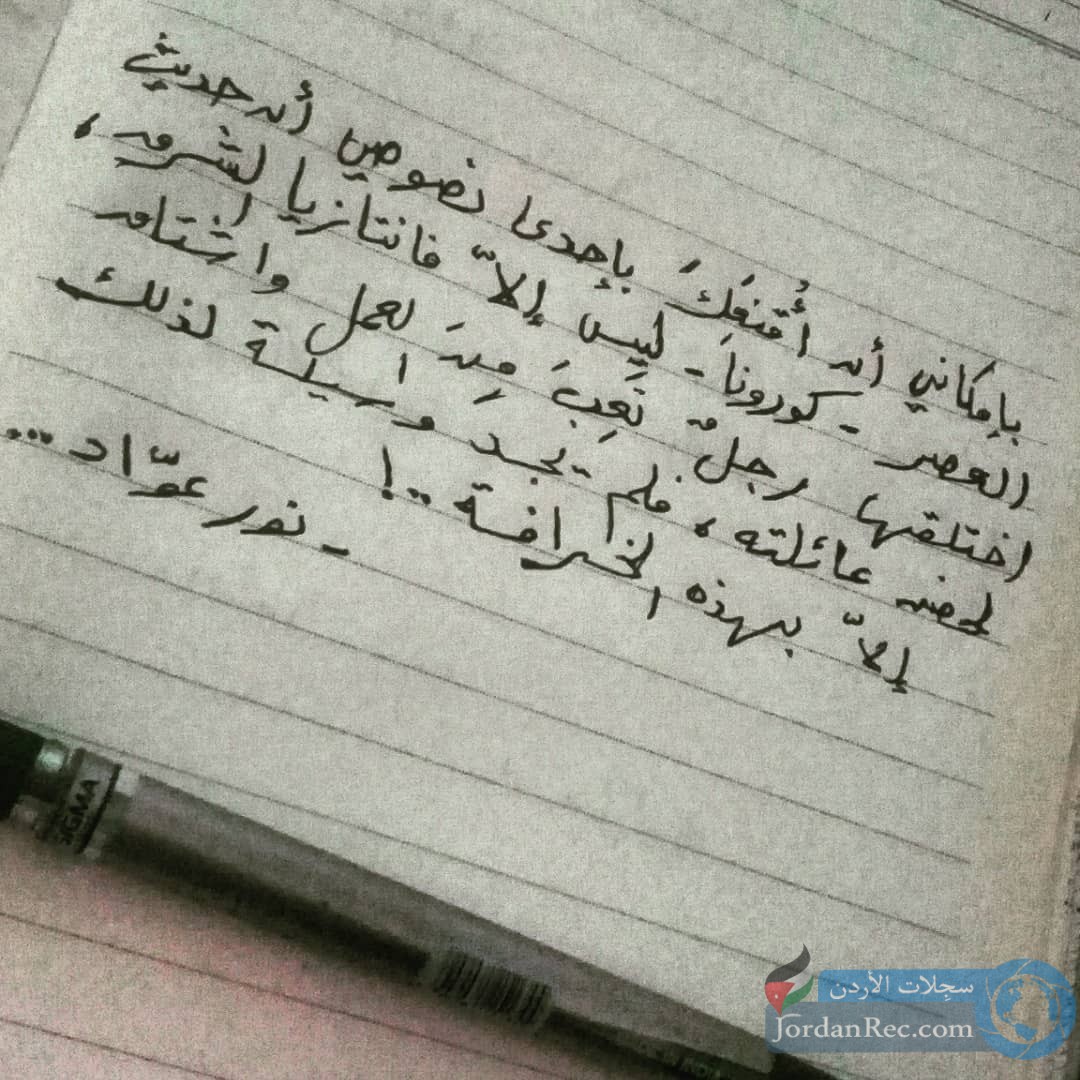 بإمكاني أن أُقنعَكَ بإحدى نصوصي أن حديث
العصر - كورونا - ليس إلاّ فانتازيا لشرق،
اختلقها رجلٌ تَعِبَ مِنَ العمل واشتاق
لحضن عائلته، فلم يجد وسيلة لذلك
إلاّ بهذه الخرافة..!
- نور عوّاد...
SIGMA
INDIA
سجلات الأردن
JordanRec.com